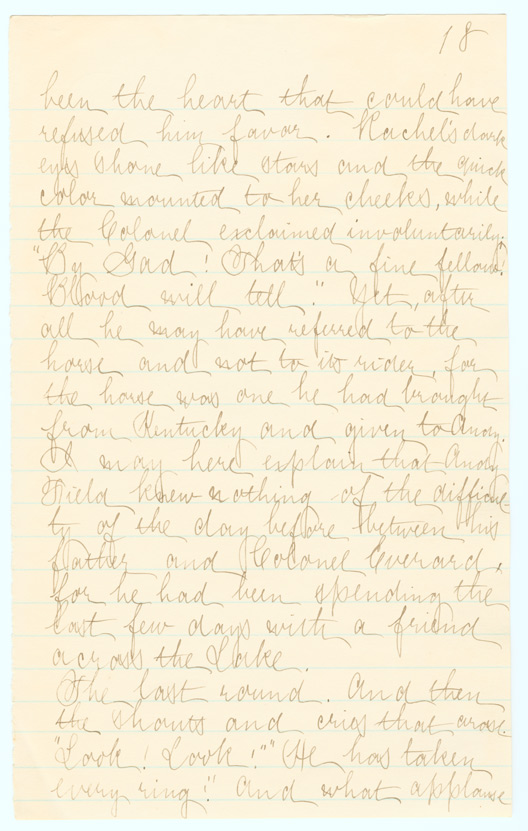 18
been the heart that could have
refused him favor. Rachel's dark
eyes shone like stars and the quick
color mounted to her cheeks, while
the Colonel exclaimed involuntarily:
"By Gad! That's a fine fellow!
Blood will tell." Yet, after
all he may have referred to the
horse and not to its rider, for
the horse was one he had brought
from Kentucky and given to Andy.
I may here explain that Andy
Field knew nothing of the difficul-
ty of the day before between his
father and Colonel Everard,
for he had been spending the
last few days with a friend
across the Lake.
The last round. And then
the shouts and cries that arose.
"Look! Look!" "He has taken
every ring!" And what applause